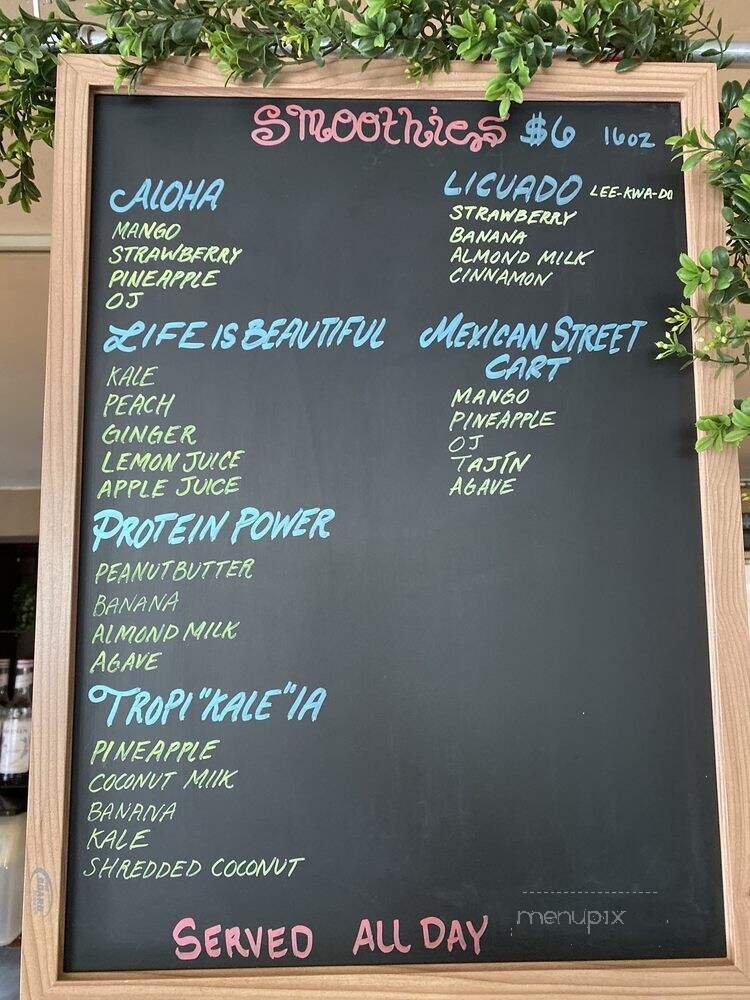 SMOOTHIES $6 16oz
ALOHA
MANGO
STRAWBERRY
PINEAPPLE
OJ
LIFE IS BEAUTIFUL
KALE
PEACH
GINGER
LEMON JUICE
APPLE JUICE
PROTEIN POWER
PEANUTBUTTER
BANANA
ALMOND MILK
AGAVE
TROPI "KALE" IA
PINEAPPLE
COCONUT MILK
BANANA
KALE
SHREDDED COCONUT
LICUADO LEE-KWA-DO
STRAWBERRY
BANANA
ALMOND MILK
CINNAMON
MEXICAN STREET
CART
MANGO
PINEAPPLE
OJ
TAJÍN
AGAVE
SERVED ALL DAY
menupix